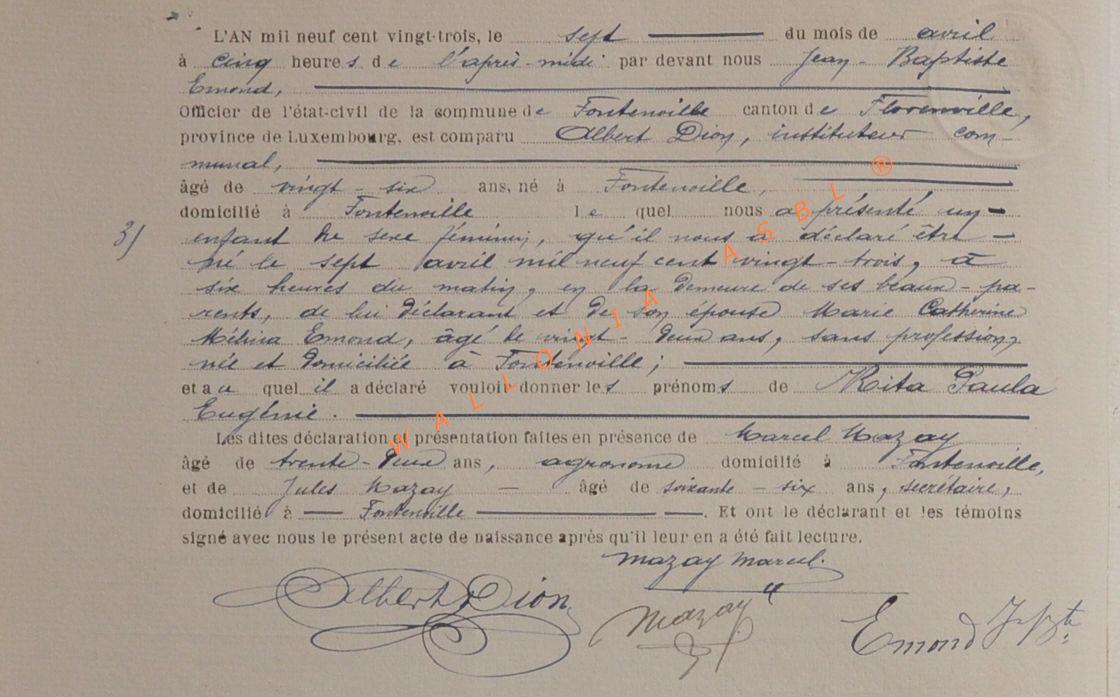 L'AN mil neuf cent vingt-trois, le sept du mois de avril
à cinq heures de l'après-midi par devant nous Jean-Baptiste
Emond,
Officier de l'état-civil de la commune de Fontenoille canton de Florenville,
province de Luxembourg, est comparu Albert Dion, instituteur com-
munal,
âgé de vingt-six ans, né à Fontenoille,
domicilié à Fontenoille lequel nous a présenté un
enfant de sexe féminin, qu'il nous a déclaré être
né le sept avril mil neuf cent vingt-trois, à
six heures du matin, en la demeure de ses beaux-pa-
rents, de lui déclarant et de son épouse Marie Catherine
Mélina Emond, âgé de vingt-deux ans, sans profession,
née et domiciliée à Fontenoille;
et au quel il a déclaré vouloir donner les prénoms de Rita Paula
Eugénie.
Les dites déclaration et présentation faites en présence de Marcel Mazay
âgé de trente-deux ans, agronome domicilié à Fontenoille,
et de Jules Mazay — âgé de soixante-six ans, secrétaire,
domicilié à Fontenoille. Et ont le déclarant et les témoins
signé avec nous le présent acte de naissance après qu'il leur en a été fait lecture.
3/
Mazay Marcel.
Albert Dion
Mazay J
Emond J Bpte
WALLONIA ASBL ®